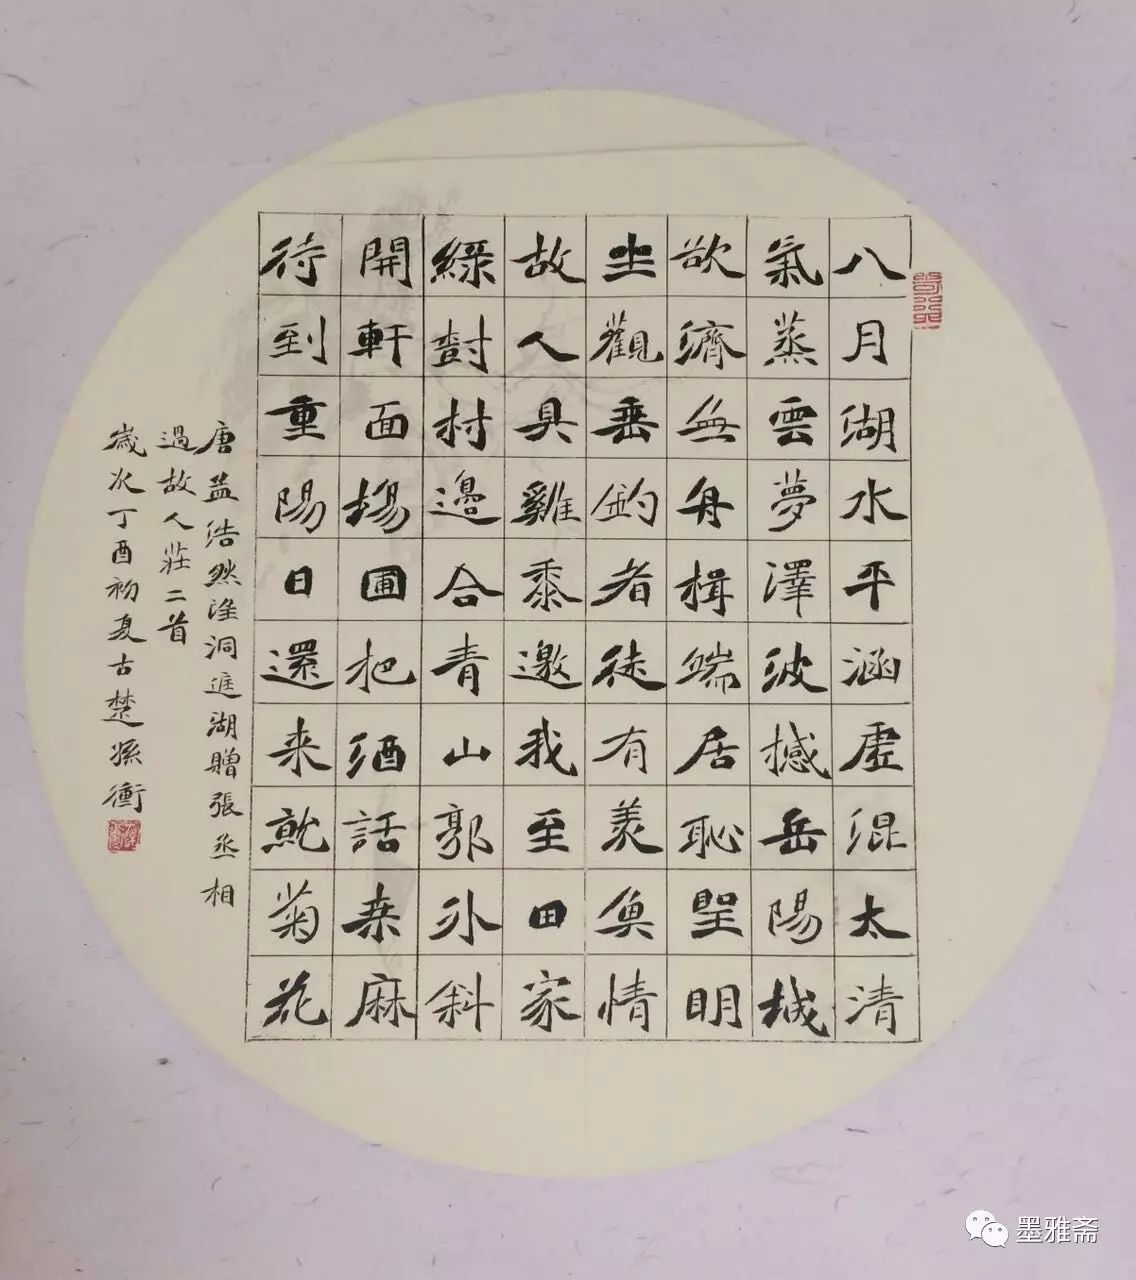 八月湖水平涵虛混太清
氣蒸雲夢澤波撼岳陽城
欲濟無舟楫端居恥聖明
坐觀垂釣者徒有羨魚情
故人具雞黍邀我至田家
綠樹村邊合青山郭外斜
開軒面場圃把酒話桑麻
待到重陽日還来就菊花
唐孟浩然洞庭湖贈張丞相
過故人莊二首
歲次丁酉初夏古楚孫衝
墨雅斋